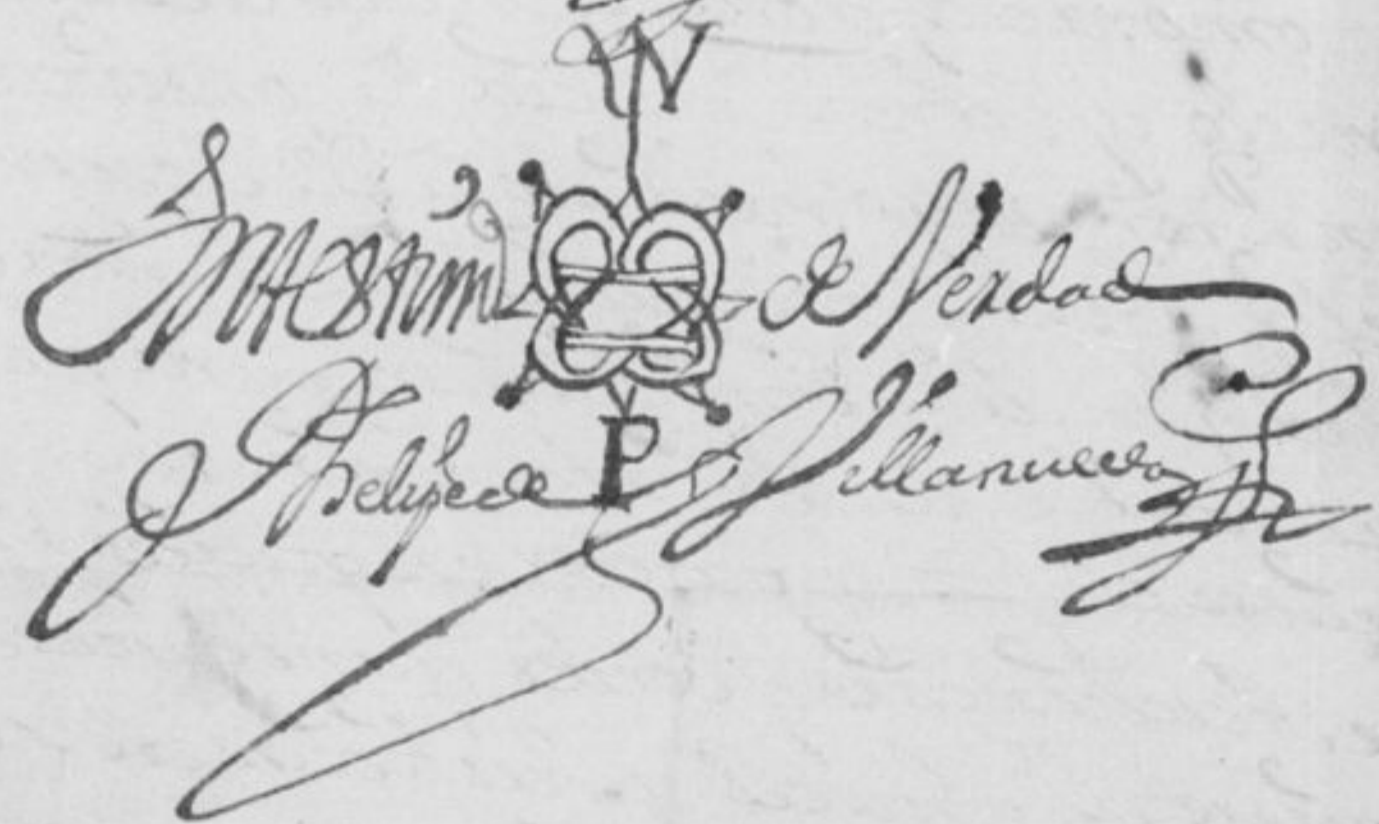 N
En testim.º de Verdad
P
Phelipe de Villanueva